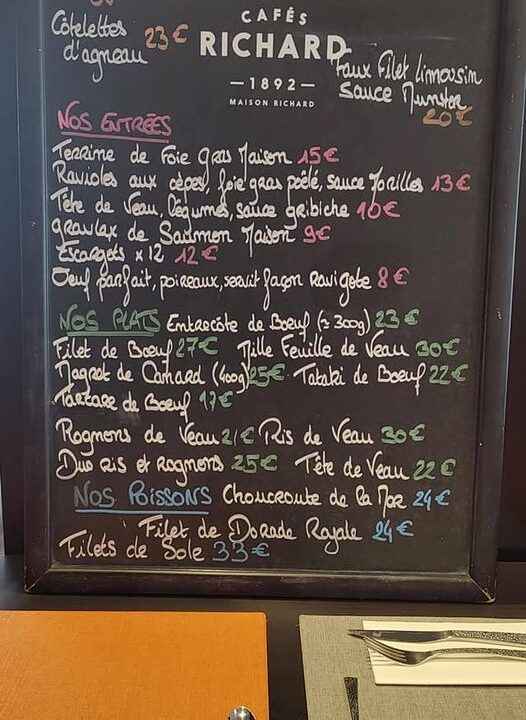 Côtelettes
d'agneau 23€
CAFÉS
RICHARD
—1892—
MAISON RICHARD
Faux Filet Limousin
Sauce Munster
20€
NOS ENTRÉES
Terrine de Foie Gras Maison 15€
Ravioles aux cèpes, foie gras poêlé, sauce Morilles 13€
Tête de Veau, légumes, sauce gribiche 10€
Gravlax de Saumon Maison 9€
Escargots x12 12€
Oeuf parfait, poireaux, servit façon Ravigote 8€
NOS PLATS Entrecôte de Boeuf (≈300g) 23€
Filet de Boeuf 27€ Mille Feuille de Veau 30€
Magret de Canard (400g) 25€ Tataki de Boeuf 22€
Tartare de Boeuf 17€
Rognons de Veau 21€ Ris de Veau 30€
Duo ris et rognons 25€ Tête de Veau 22€
NOS POISSONS Choucroute de la Mer 24€
Filet de Dorade Royale 24€
Filets de Sole 33€